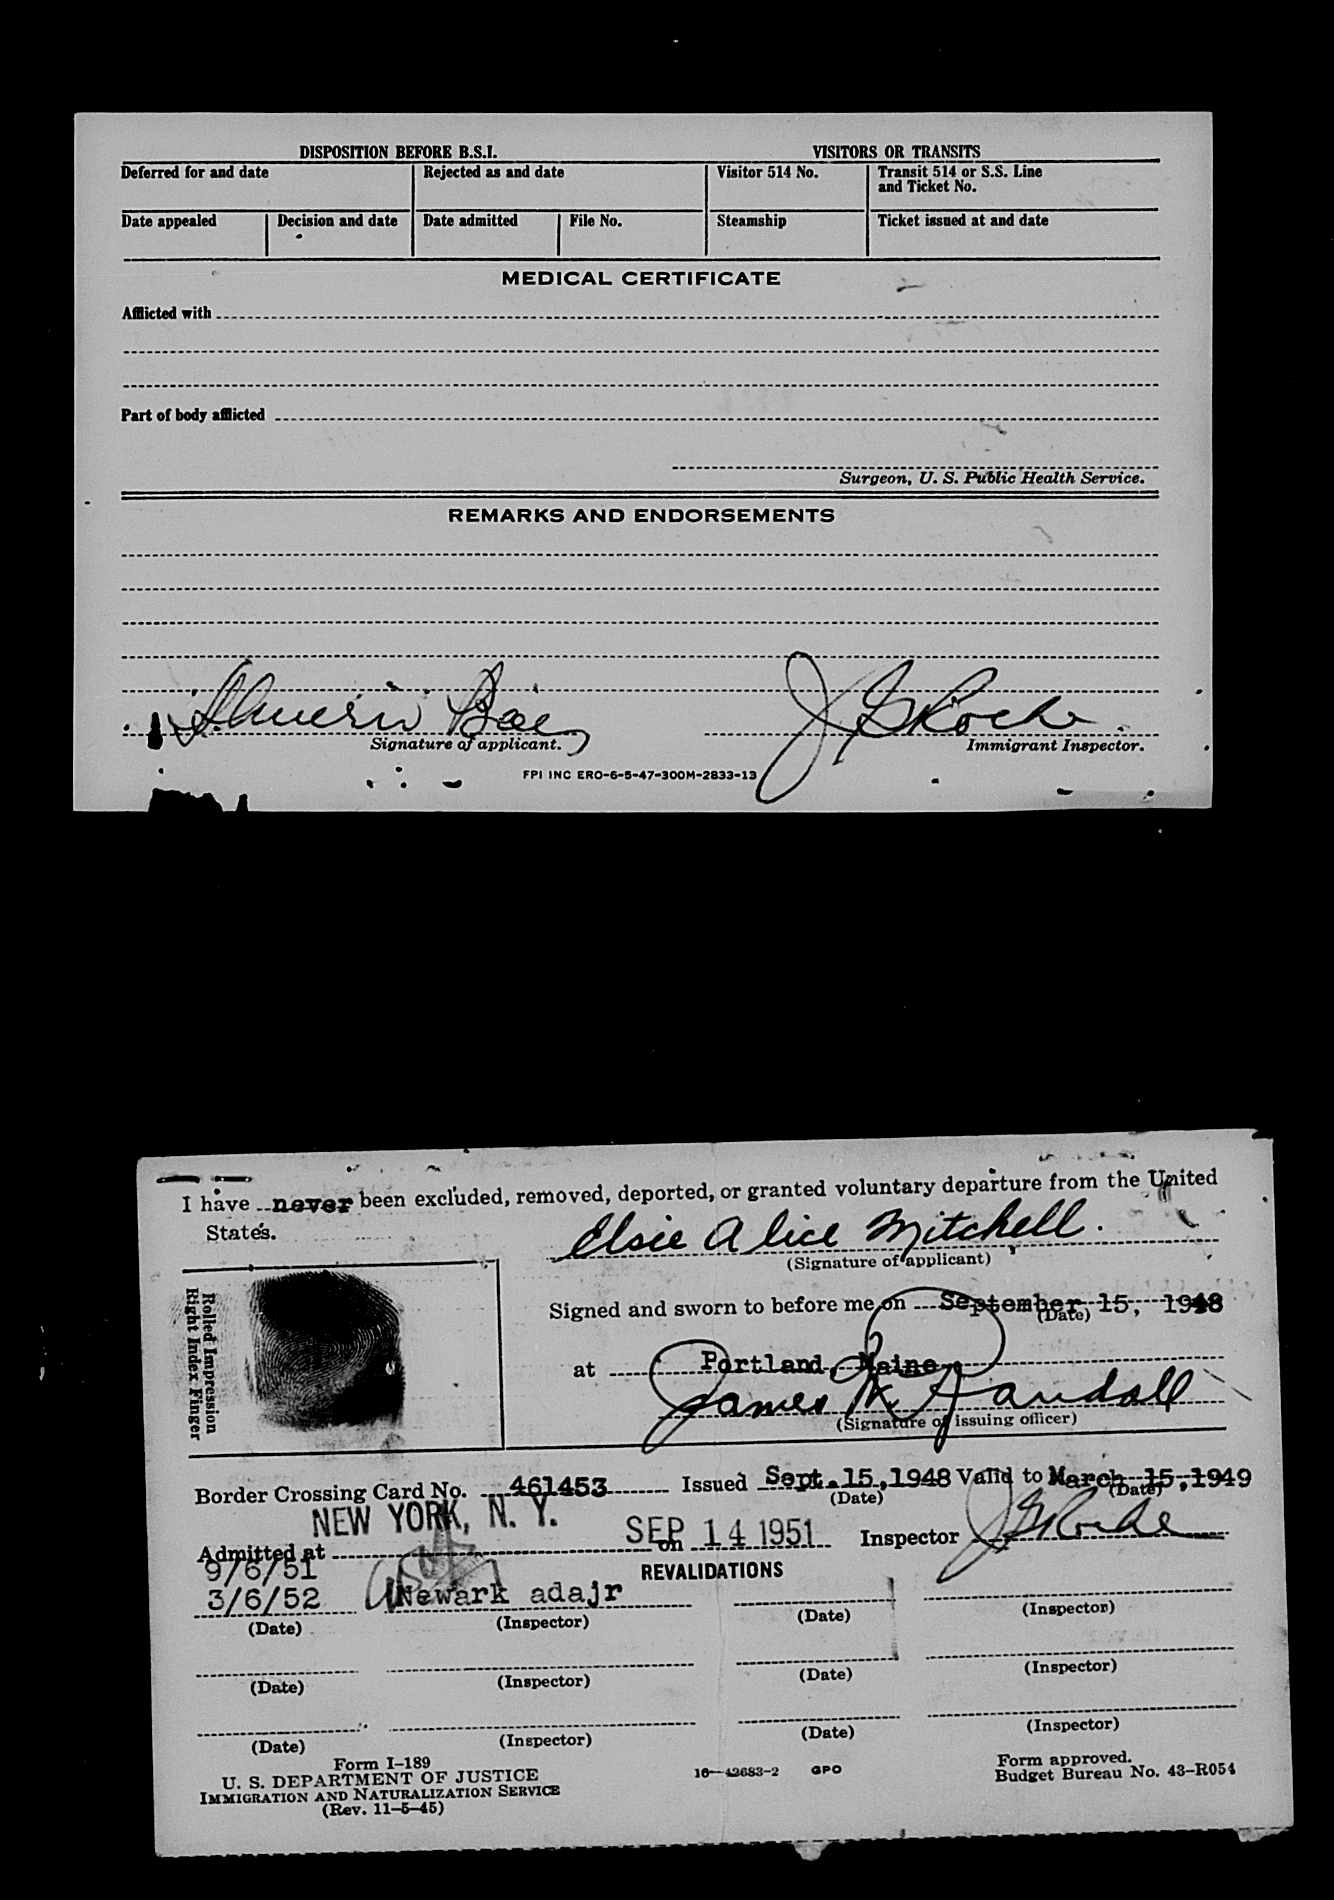 DISPOSITION BEFORE B.S.I. VISITORS OR TRANSITS
Deferred for and date Rejected as and date Visitor 514 No. Transit 514 or S.S. Line and Ticket No.
Date appealed Decision and date Date admitted File No. Steamship Ticket issued at and date
MEDICAL CERTIFICATE
Afflicted with
Part of body afflicted
Surgeon, U. S. Public Health Service.
REMARKS AND ENDORSEMENTS
J G Roche
Signature of applicant. Immigrant Inspector.
FPI INC ERO-6-5-47-300M-2833-13
I have never been excluded, removed, deported, or granted voluntary departure from the United
States.
Elsie Alice Mitchell.
(Signature of applicant)
Rolled Impression
Right Index Finger
Signed and sworn to before me on September 15, 1948
(Date)
at Portland, Maine
James K. Randall
(Signature of issuing officer)
Border Crossing Card No. 461453 Issued Sept. 15, 1948 Valid to March 15, 1949
(Date) (Date)
NEW YORK, N. Y.
Admitted at on SEP 14 1951 Inspector J G Roche
9/6/51
REVALIDATIONS
3/6/52 Newark adajr
(Date) (Inspector) (Date) (Inspector)
(Date) (Inspector) (Date) (Inspector)
(Date) (Inspector) (Date) (Inspector)
Form I-189
U. S. DEPARTMENT OF JUSTICE
IMMIGRATION AND NATURALIZATION SERVICE
(Rev. 11-5-45)
16—43683-2 GPO
Form approved.
Budget Bureau No. 43-R054